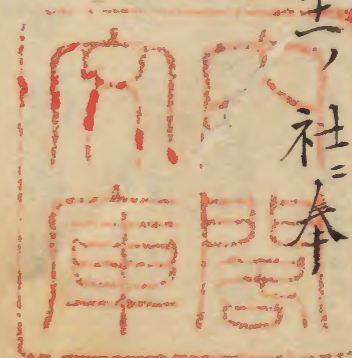 ノ社ニ奉
内閣
文庫